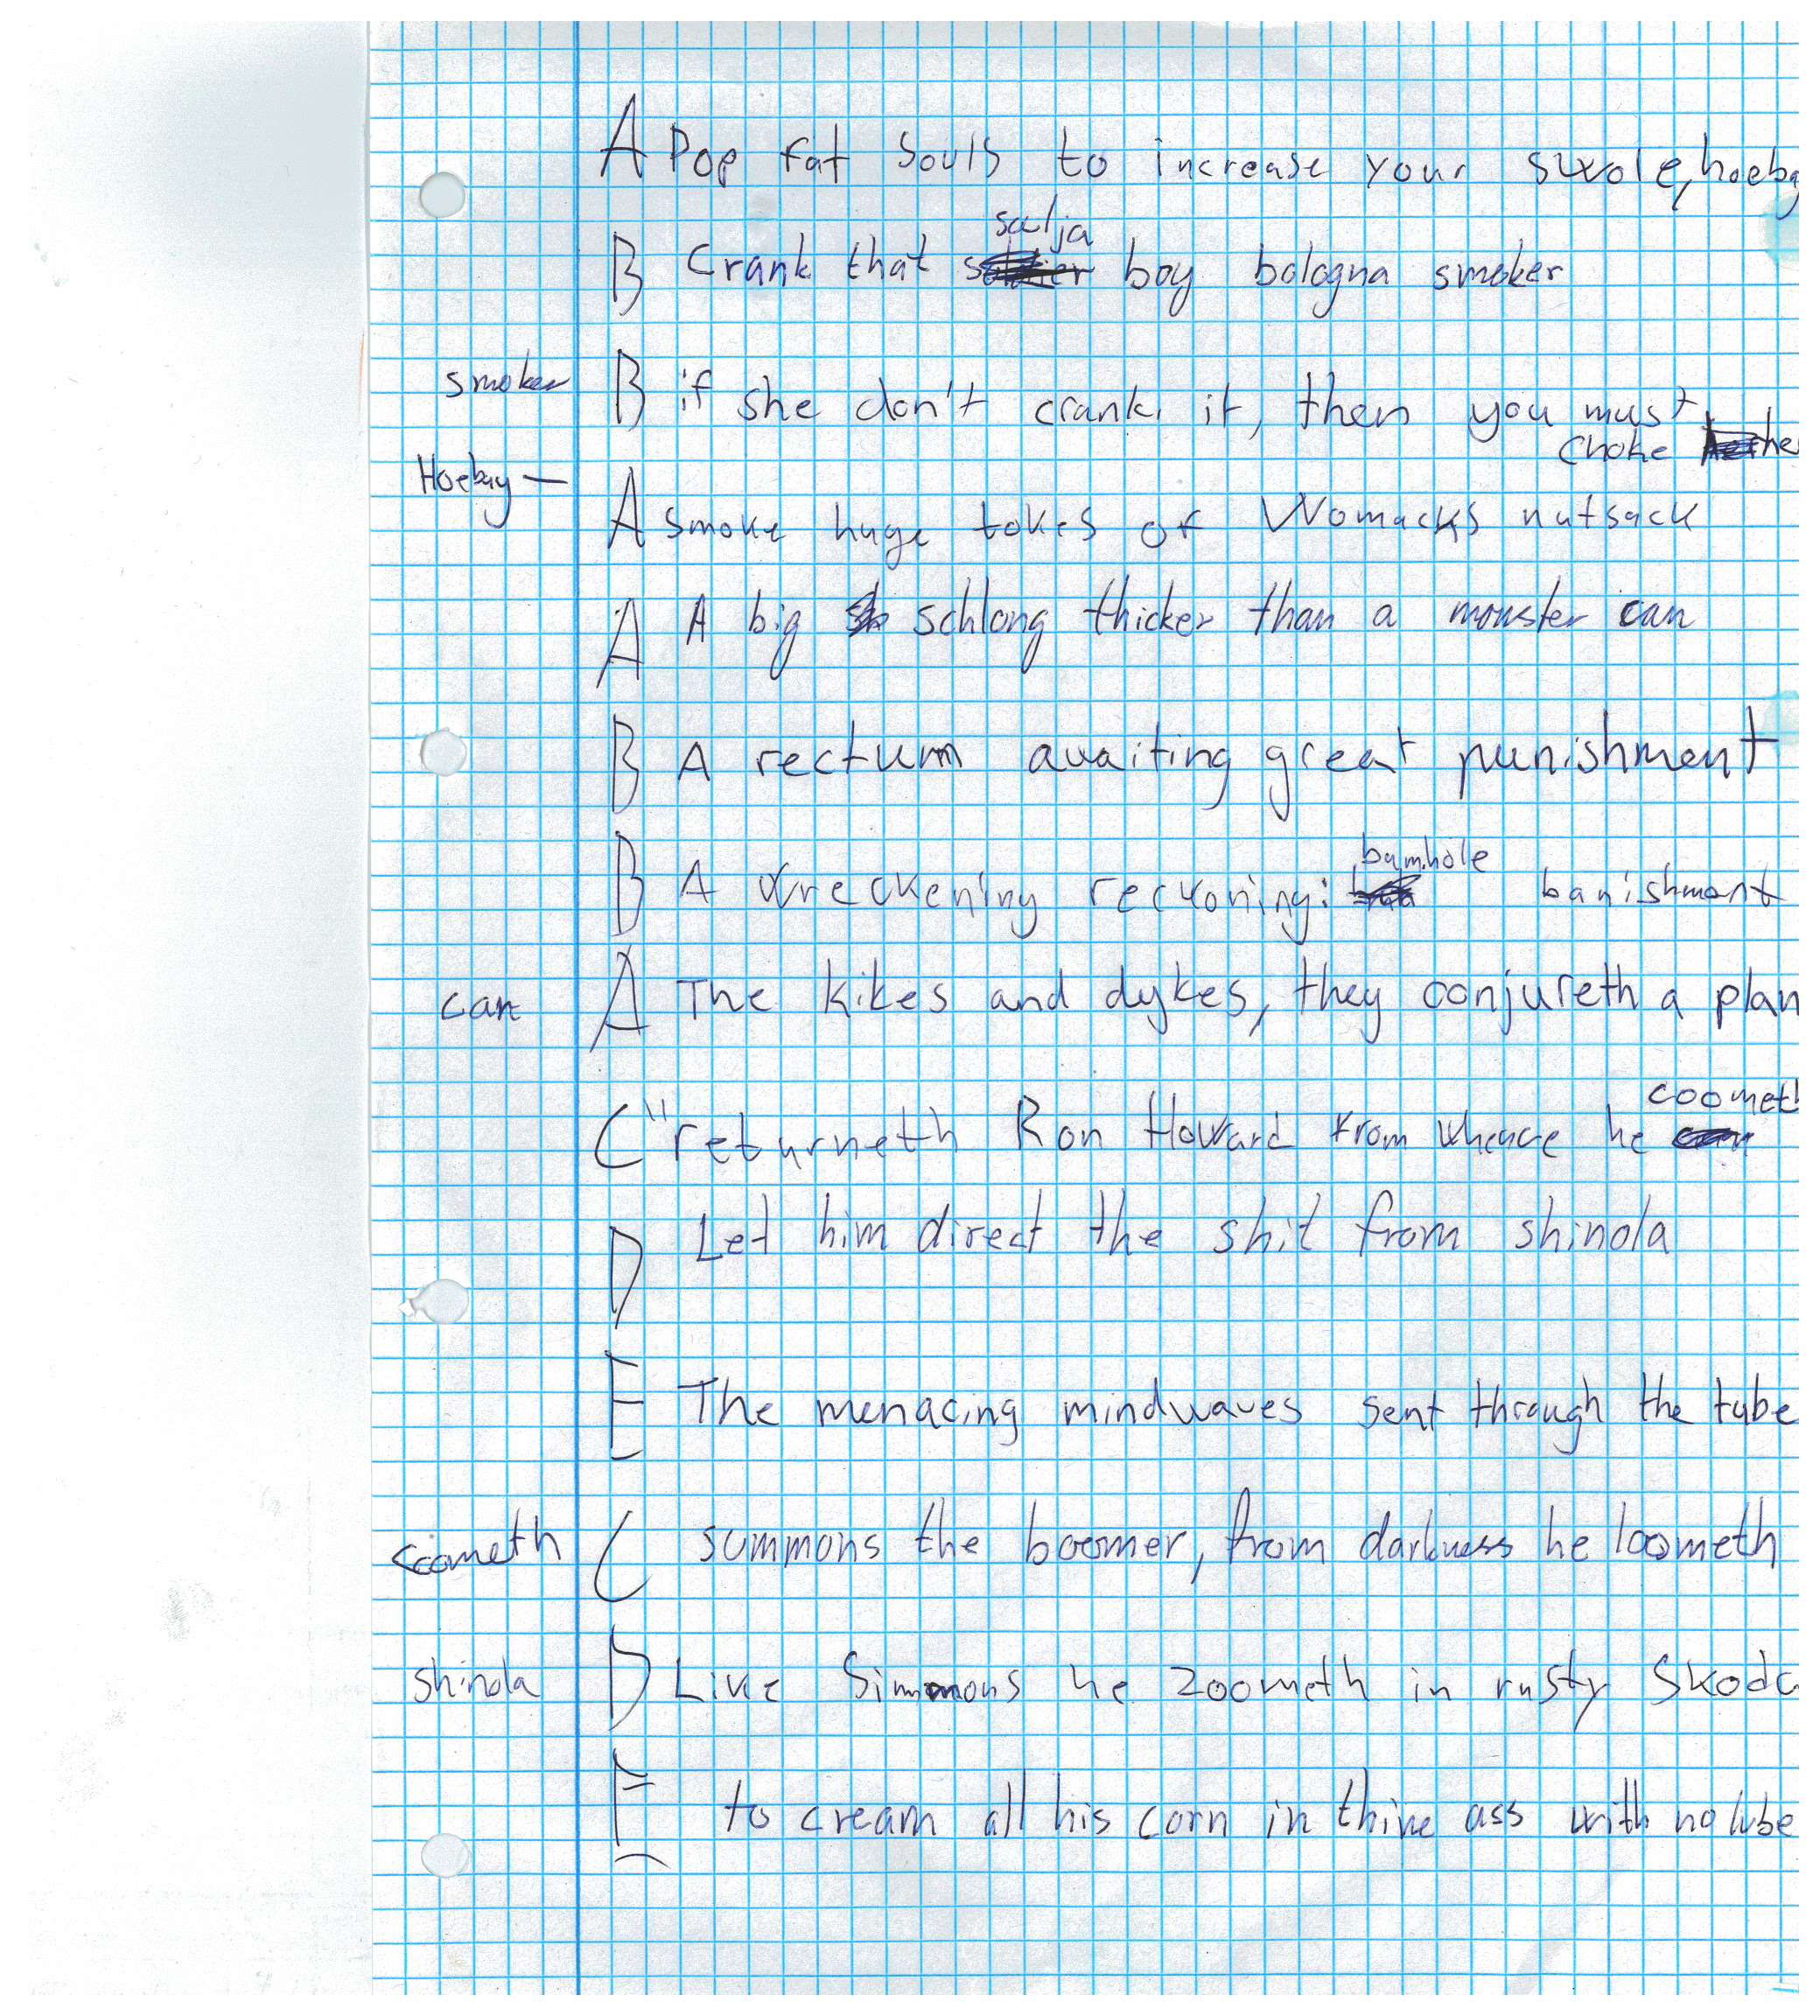 A Pop fat souls to increase your swole, hoebag
salja
B Crank that boy bologna smoker
smoker B if she don't crank it, then you must
choke her
Hoebag — A smoke huge tokes of Womacks nutsack
A A big schlong thicker than a monster can
B A rectum awaiting great punishment
bumhole
B A wreckening reckoning: banishment
can A The kikes and dykes, they conjureth a plan
coometh
C "returneth Ron Howard from whence he
D Let him direct the shit from shinola
E The menacing mindwaves sent through the tube
coometh C summons the boomer, from darkness he loometh
shinola D Like Simmons he zoometh in rusty Skoda
E to cream all his corn in thine ass with no lube